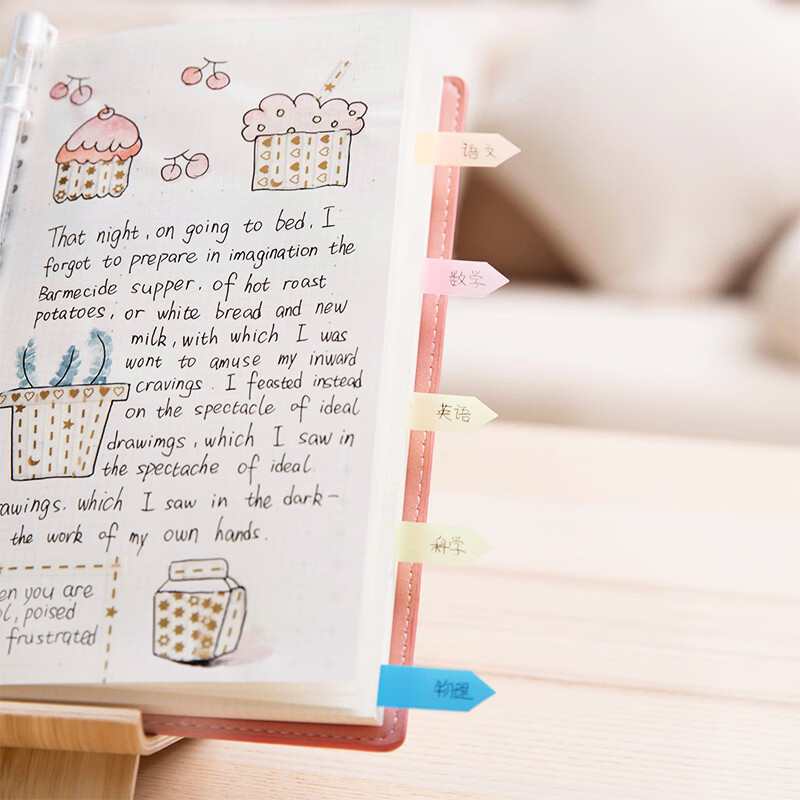 That night, on going to bed, I
forgot to prepare in imagination the
Barmecide supper, of hot roast
potatoes, or white bread and new
milk, with which I was
wont to amuse my inward
cravings. I feasted instead
on the spectacle of ideal
drawimgs, which I saw in
the spectache of ideal
awings. which I saw in the dark-
the work of my own hands.
en you are
ol, poised
frustrated
语文
数学
英语
科学
物理